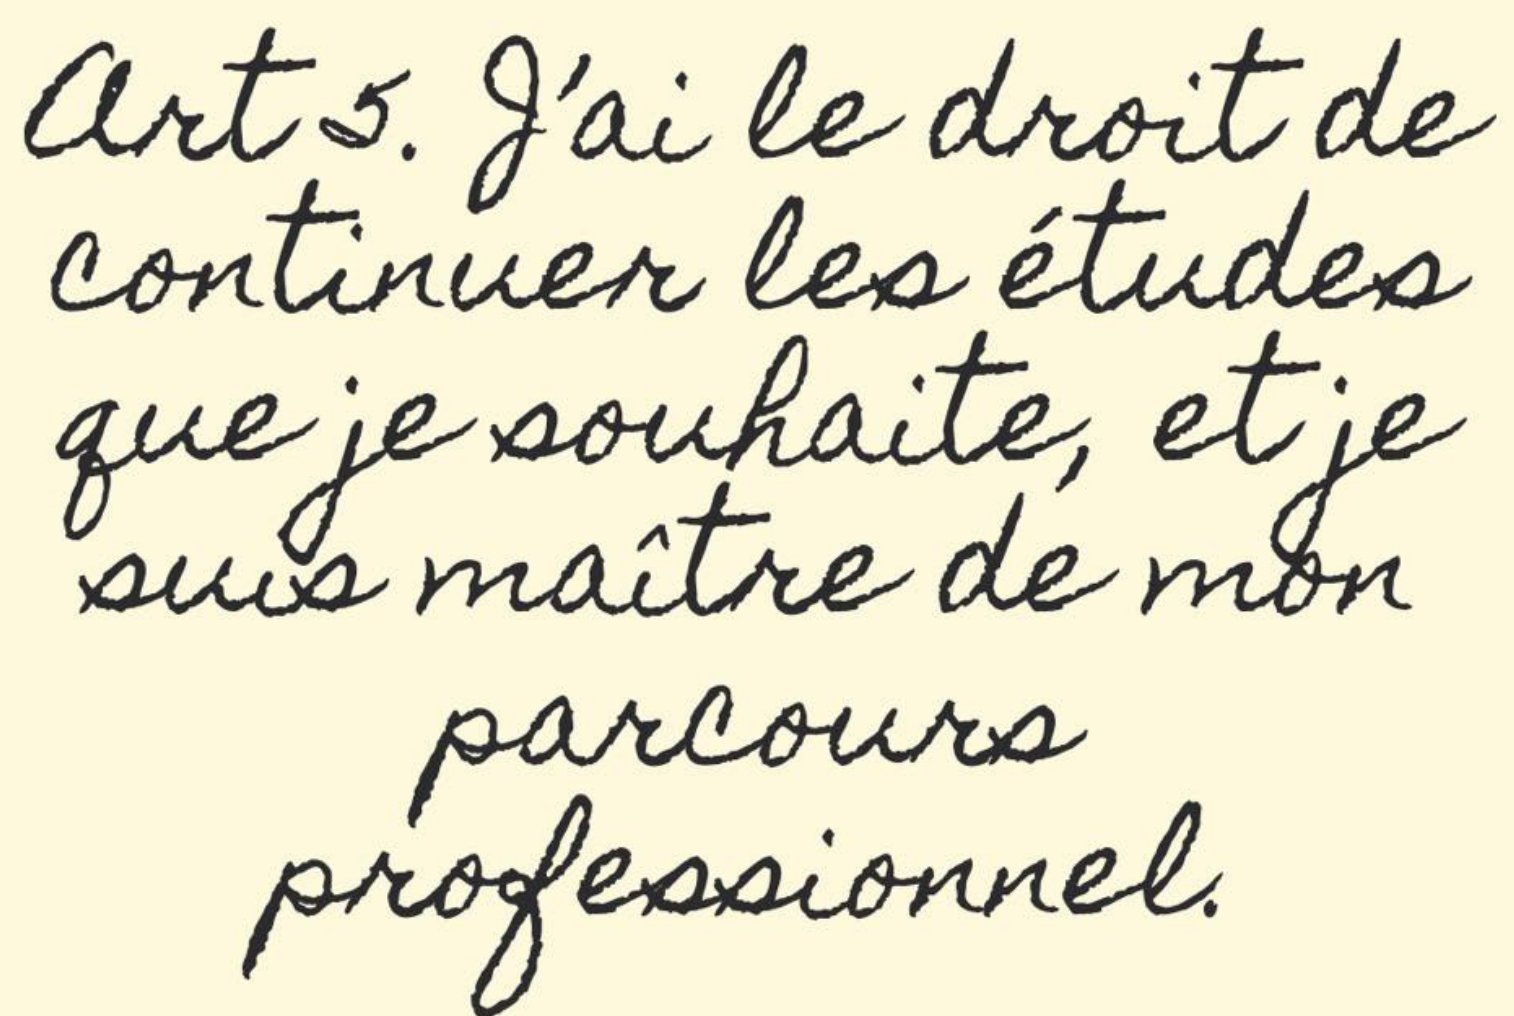 Art 5. J'ai le droit de
continuer les études
que je souhaite, et je
suis maître de mon
parcours
professionnel.